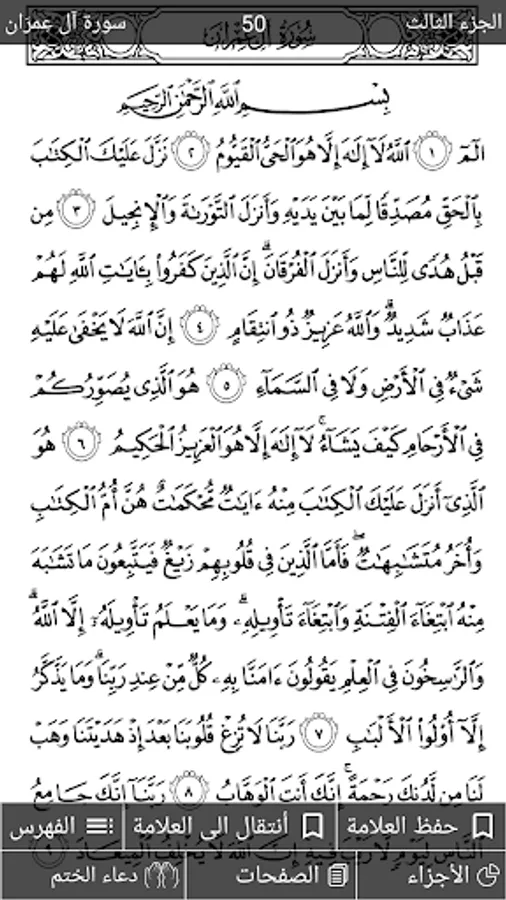 الجزء الثالث 50 سورة آل عمران
سُورَةُ آلِ عِمْرَانَ
بِسْمِ ٱللَّهِ ٱلرَّحْمَٰنِ ٱلرَّحِيمِ
الٓمٓ ١ ٱللَّهُ لَآ إِلَٰهَ إِلَّا هُوَ ٱلْحَىُّ ٱلْقَيُّومُ ٢ نَزَّلَ عَلَيْكَ ٱلْكِتَٰبَ
بِٱلْحَقِّ مُصَدِّقًا لِّمَا بَيْنَ يَدَيْهِ وَأَنزَلَ ٱلتَّوْرَىٰةَ وَٱلْإِنجِيلَ ٣ مِن
قَبْلُ هُدًى لِّلنَّاسِ وَأَنزَلَ ٱلْفُرْقَانَ ۗ إِنَّ ٱلَّذِينَ كَفَرُوا۟ بِـَٔايَٰتِ ٱللَّهِ لَهُمْ
عَذَابٌ شَدِيدٌ ۗ وَٱللَّهُ عَزِيزٌ ذُو ٱنتِقَامٍ ٤ إِنَّ ٱللَّهَ لَا يَخْفَىٰ عَلَيْهِ
شَىْءٌ فِى ٱلْأَرْضِ وَلَا فِى ٱلسَّمَآءِ ٥ هُوَ ٱلَّذِى يُصَوِّرُكُمْ
فِى ٱلْأَرْحَامِ كَيْفَ يَشَآءُ ۚ لَآ إِلَٰهَ إِلَّا هُوَ ٱلْعَزِيزُ ٱلْحَكِيمُ ٦ هُوَ
ٱلَّذِىٓ أَنزَلَ عَلَيْكَ ٱلْكِتَٰبَ مِنْهُ ءَايَٰتٌ مُّحْكَمَٰتٌ هُنَّ أُمُّ ٱلْكِتَٰبِ
وَأُخَرُ مُتَشَٰبِهَٰتٌ ۖ فَأَمَّا ٱلَّذِينَ فِى قُلُوبِهِمْ زَيْغٌ فَيَتَّبِعُونَ مَا تَشَٰبَهَ
مِنْهُ ٱبْتِغَآءَ ٱلْفِتْنَةِ وَٱبْتِغَآءَ تَأْوِيلِهِۦ ۗ وَمَا يَعْلَمُ تَأْوِيلَهُۥٓ إِلَّا ٱللَّهُ ۗ
وَٱلرَّٰسِخُونَ فِى ٱلْعِلْمِ يَقُولُونَ ءَامَنَّا بِهِۦ كُلٌّ مِّنْ عِندِ رَبِّنَا ۗ وَمَا يَذَّكَّرُ
إِلَّآ أُو۟لُوا۟ ٱلْأَلْبَٰبِ ٧ رَبَّنَا لَا تُزِغْ قُلُوبَنَا بَعْدَ إِذْ هَدَيْتَنَا وَهَبْ
لَنَا مِن لَّدُنكَ رَحْمَةً ۚ إِنَّكَ أَنتَ ٱلْوَهَّابُ ٨ رَبَّنَآ إِنَّكَ جَامِعُ
ٱلنَّاسِ لِيَوْمٍ لَّا رَيْبَ فِيهِ ۚ إِنَّ ٱللَّهَ لَا يُخْلِفُ ٱلْمِيعَادَ ٩
حفظ العلامة أنتقال الى العلامة الفهرس
الأجزاء الصفحات دعاء الختم